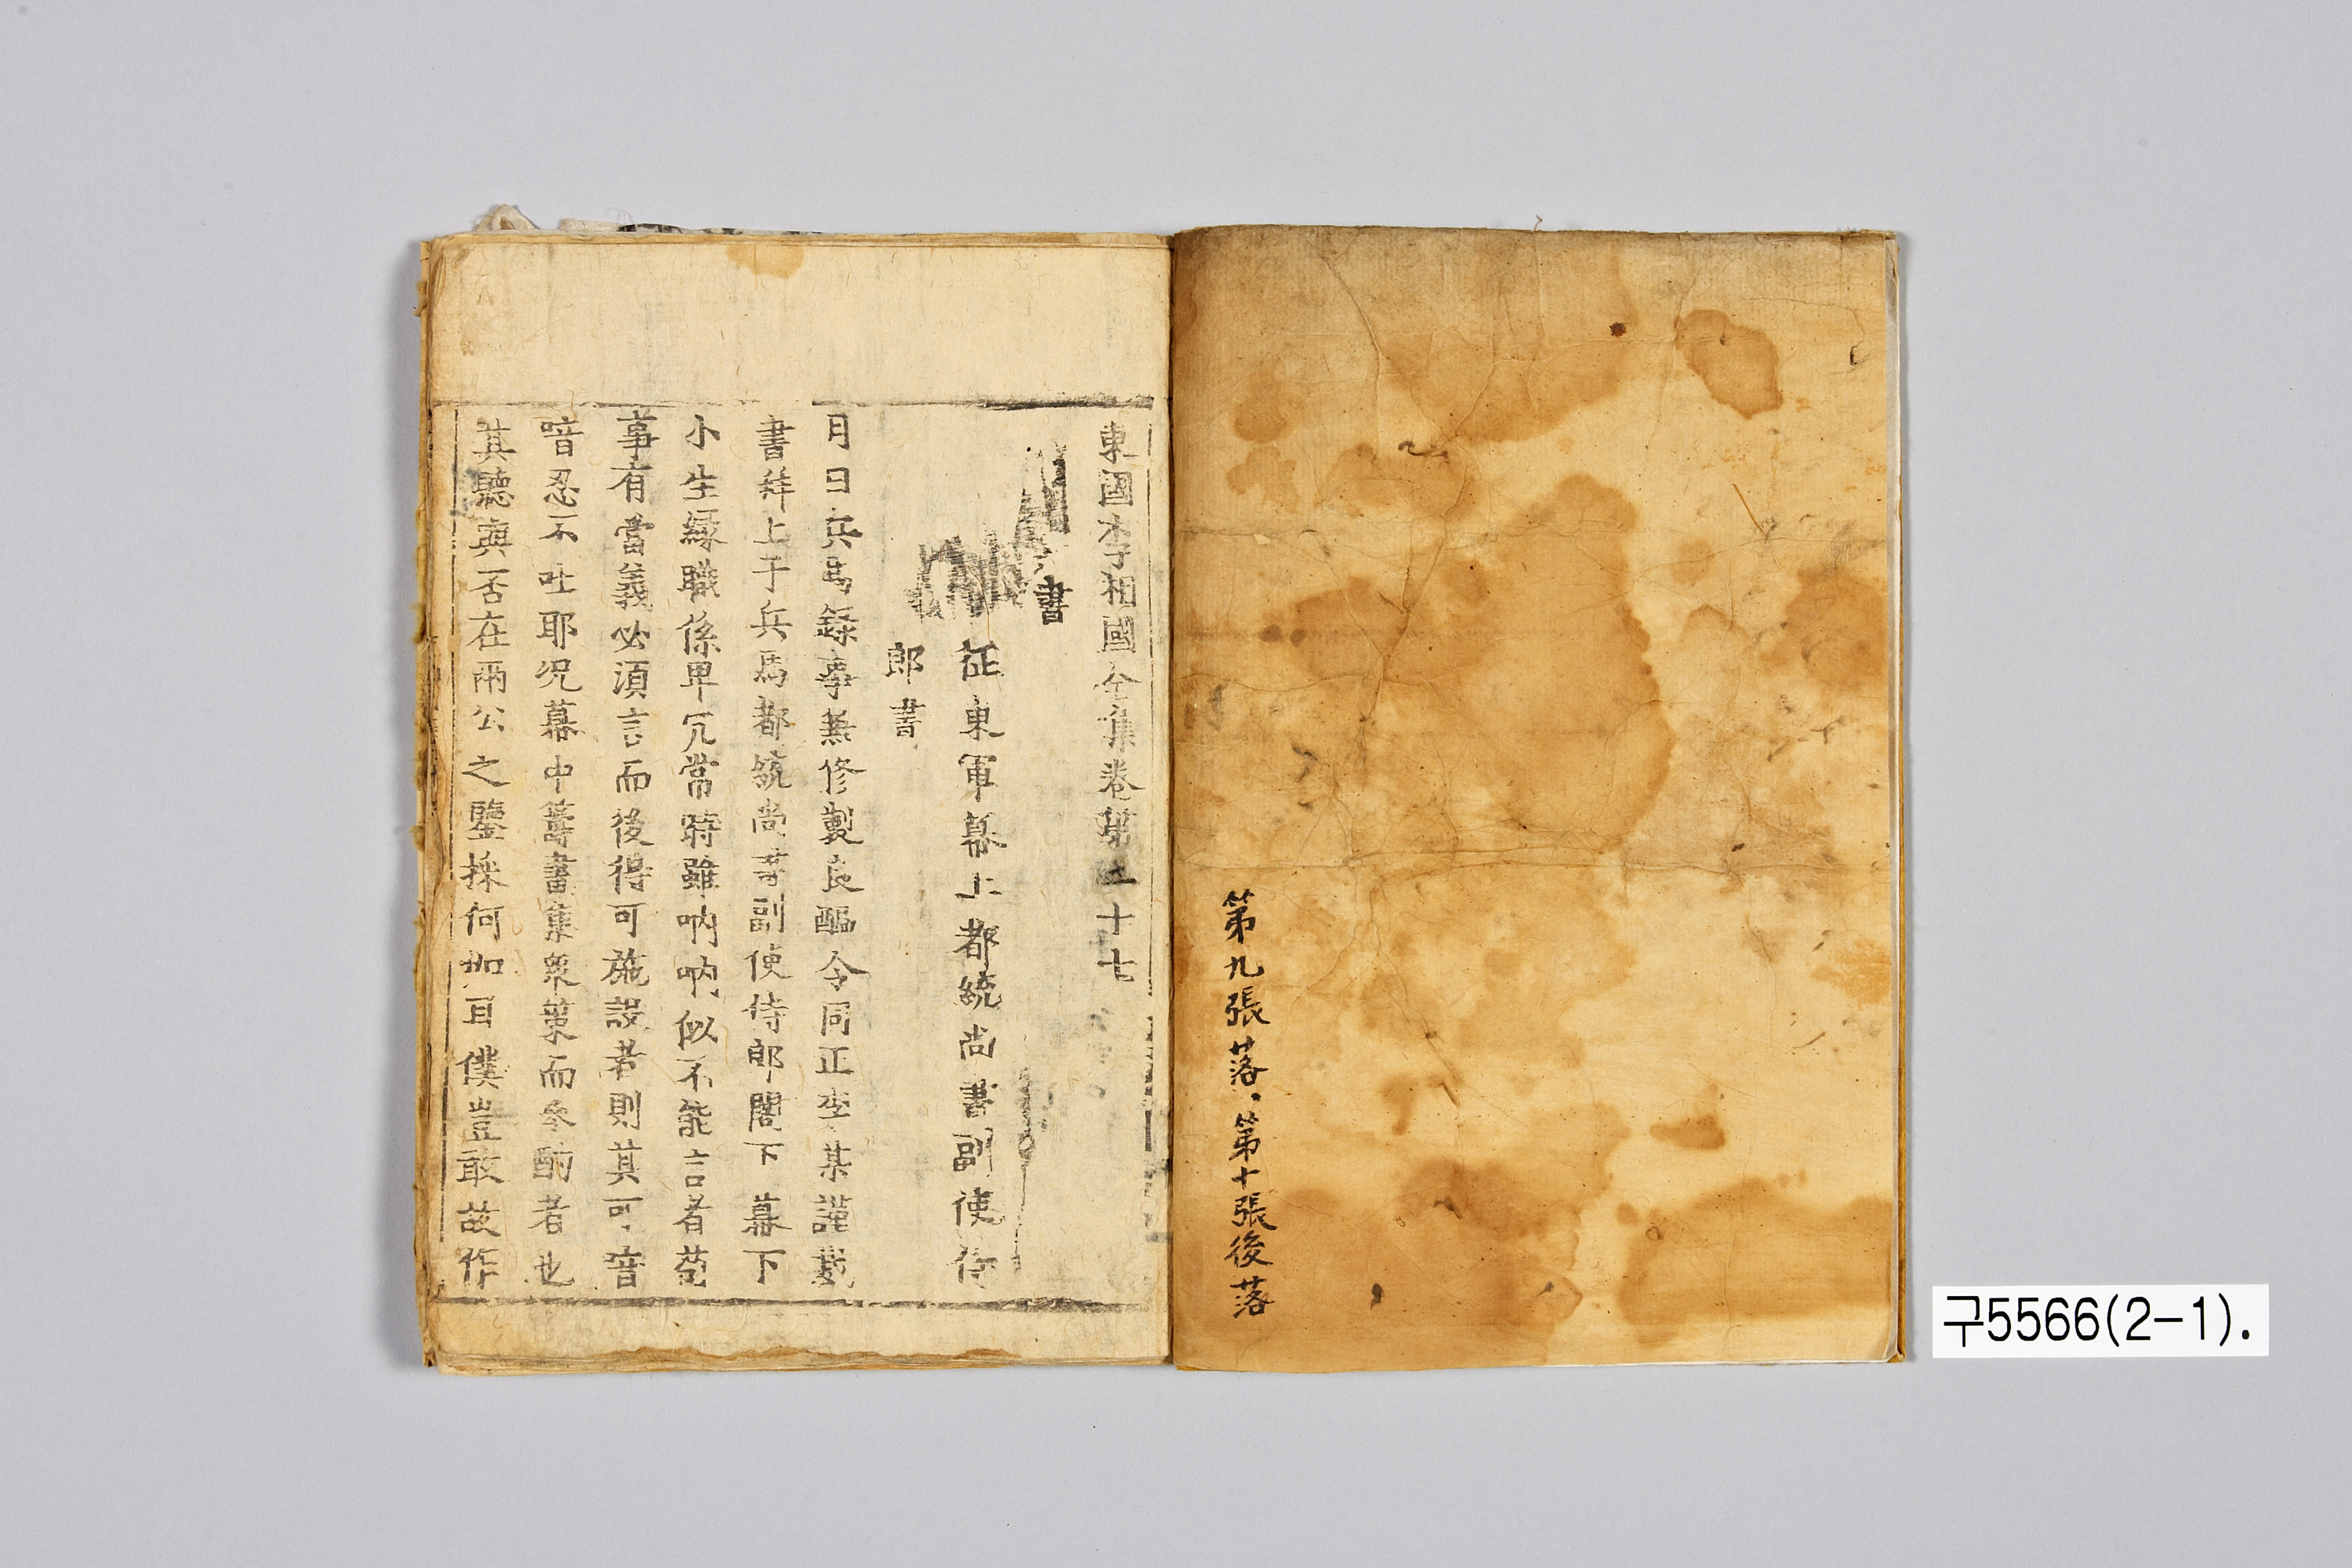 第九張落、第十張後落
東國李相國全集卷第二十七
書
征東軍幕上都統尚書副使侍
郎書
月日兵馬錄事兼修製良醞令同正李某謹裁
書拜上于兵馬都統尚書副使侍郎閤下幕下
小生緣職係卑冗常時雖吶吶似不能言者苟
事有當義必須言而後得可施設者則其可喑
喑忍不吐耶况幕中籌畫集衆策而參酌者也
其聽與否在兩公之鑒採何如耳僕豈敢故作
구5566(2-1).